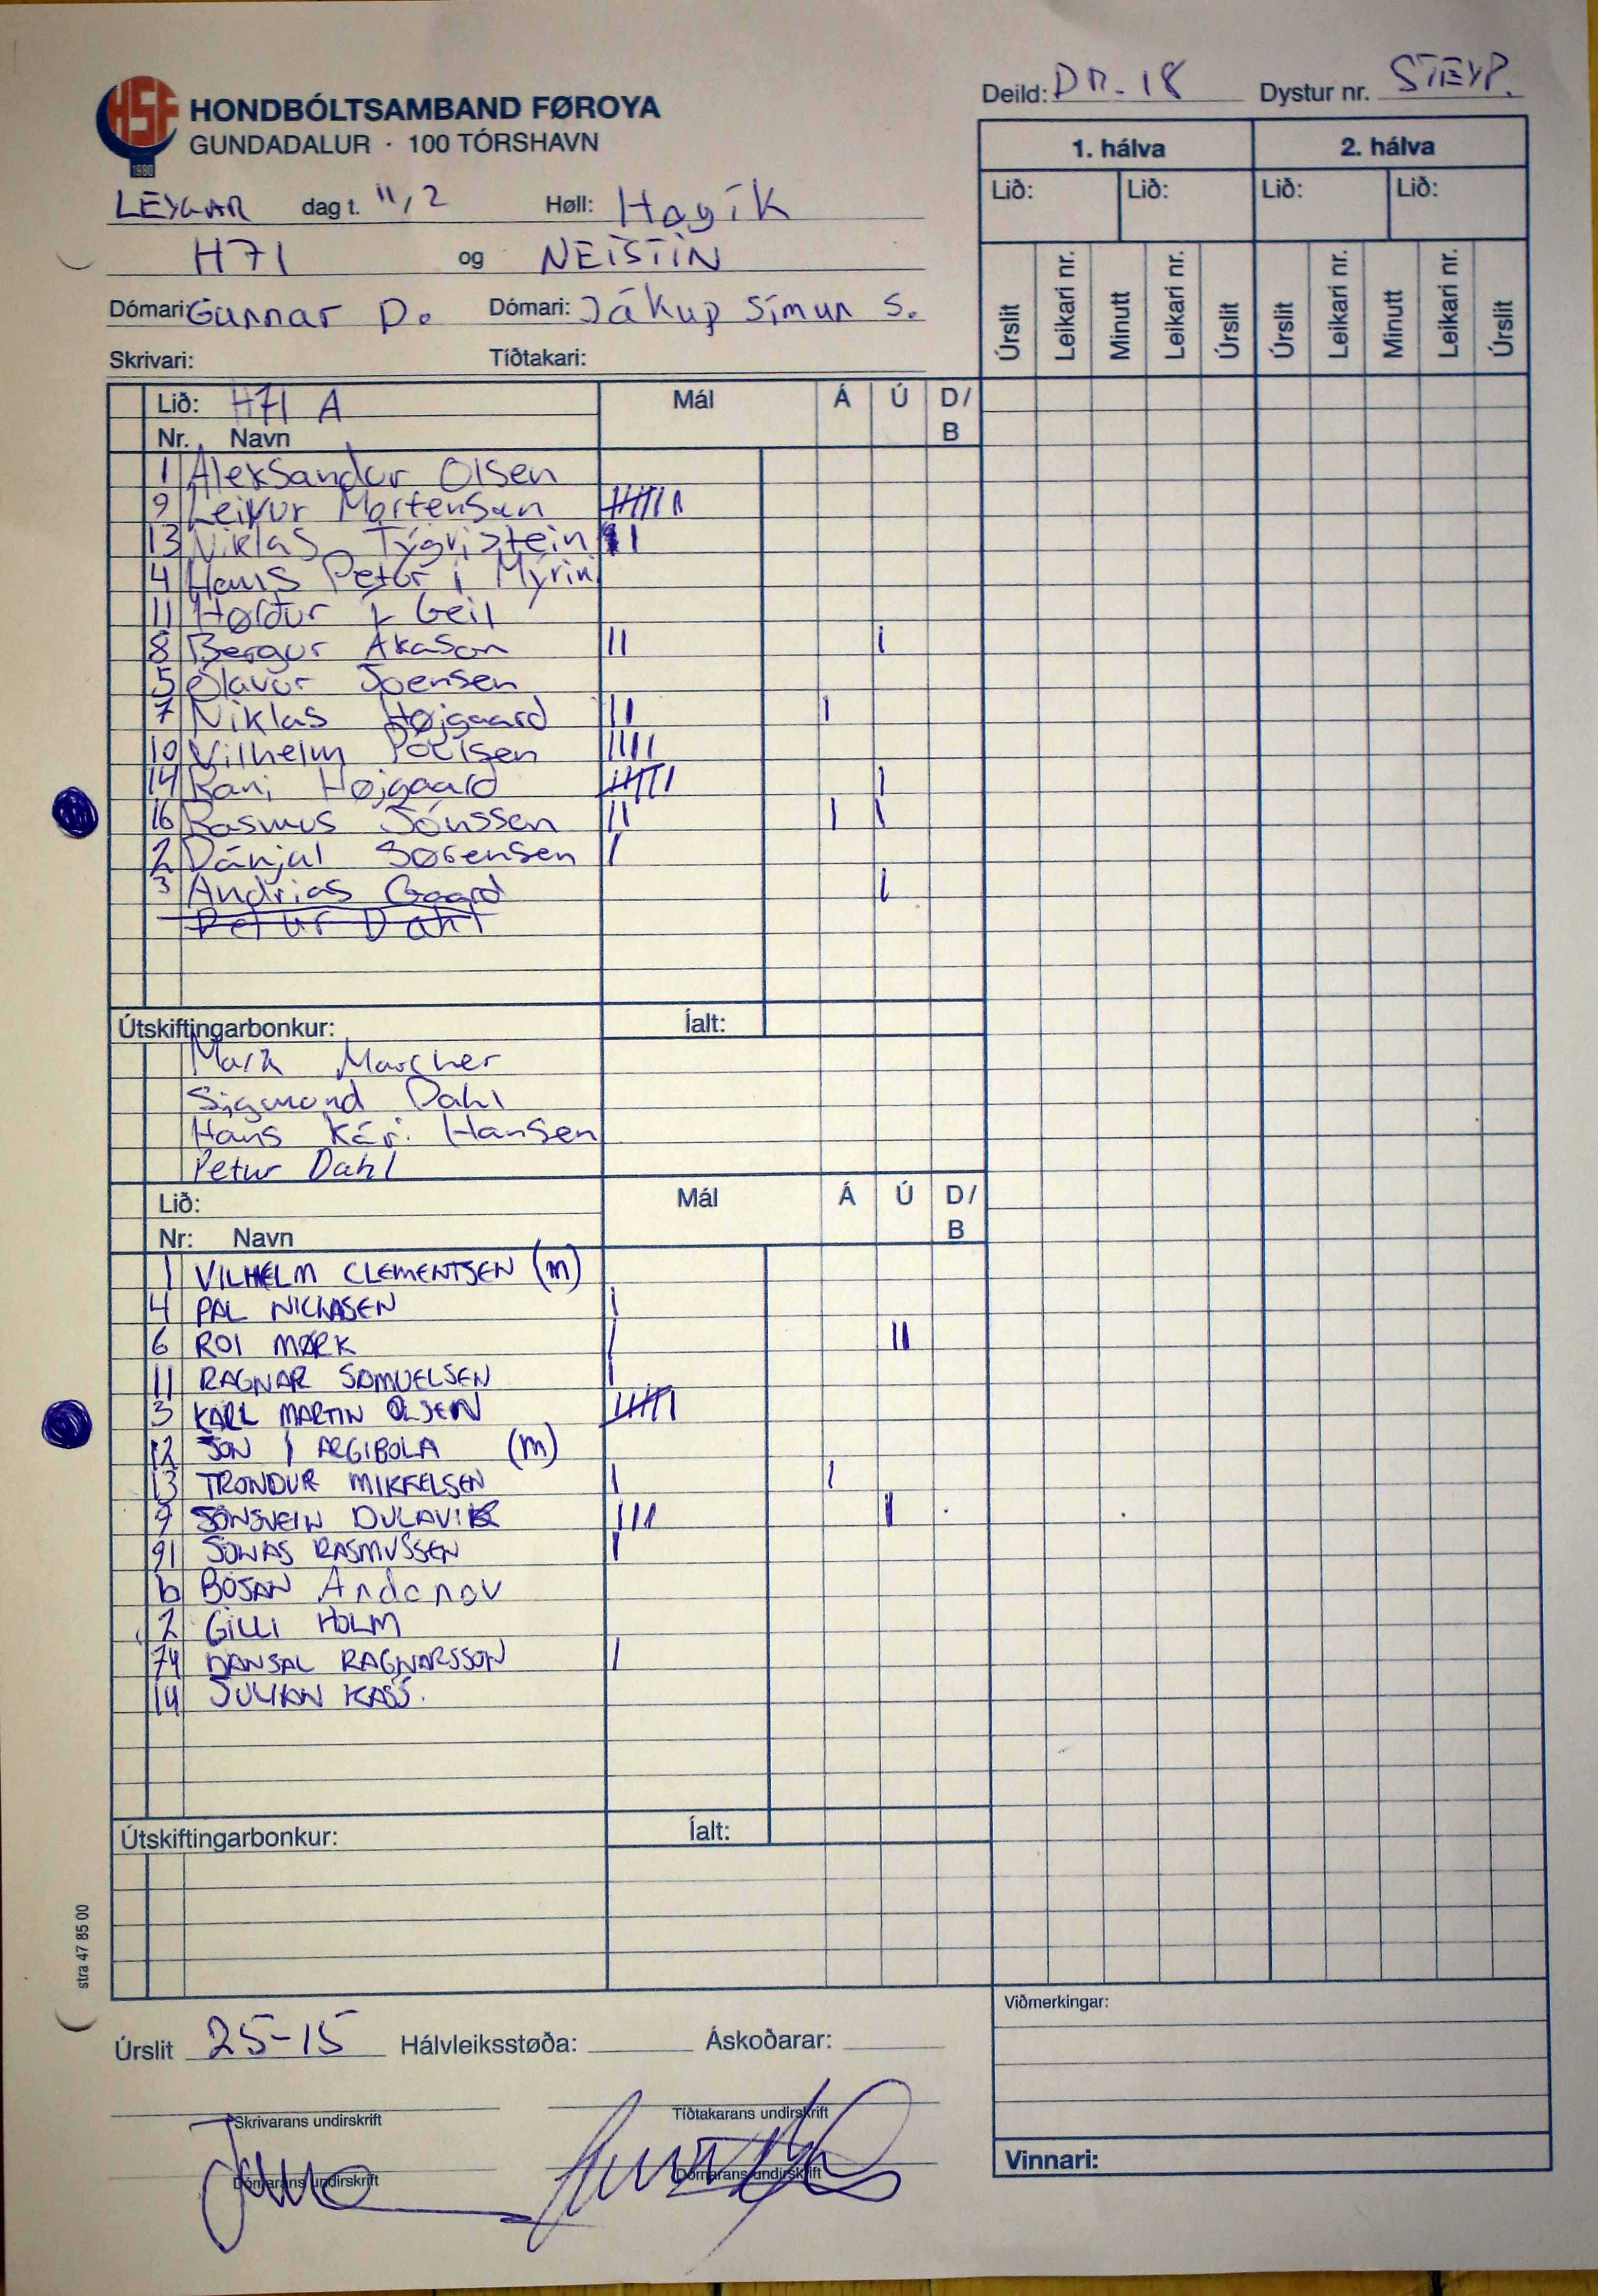 Deild: DR-18 Dystur nr. STEYP.
HSF HONDBÓLTSAMBAND FØROYA
GUNDADALUR · 100 TÓRSHAVN
1980
LEYGAR dag t. 11/2 Høll: Hagík
H71 og NEISTIN
Dómari: Gunnar D. Dómari: Jákup Símun S.
Skrivari: Tíðtakari:
1. hálva 2. hálva
Lið: Lið: Lið: Lið:
Úrslit Leikari nr. Minutt Leikari nr. Úrslit Úrslit Leikari nr. Minutt Leikari nr. Úrslit
Lið: H71 A Mál Á Ú D/B
Nr. Navn
1 Aleksandur Olsen
9 Leivur Mortensen
13 Niklas Týgristein
4 Hans Petur í Mýrini
11 Høldur í Geil
8 Bergur Ákason
5 Ólavur Joensen
7 Niklas Højgaard
10 Vilhelm Poulsen
14 Rani Højgaard
16 Rasmus Jónsson
2 Dánjal Sørensen
3 Andrias Gaard
Petur Dahl
Útskiftingarbonkur: Íalt:
Mark Marcher
Sigmond Dahl
Hans Kári Hansen
Petur Dahl
Lið: Mál Á Ú D/B
Nr: Navn
1 VILHELM CLEMENTSEN (M)
4 PAL NICLASEN
6 ROI MØRK
11 RAGNAR SAMUELSEN
3 KARL MARTIN OLSEN
12 JON Í ARGIBOLA (M)
13 TRONDUR MIKKELSEN
9 JONSVEIN DULAVIK
91 JONAS RASMUSSEN
b BOJAN Andonov
2 GILLI HOLM
74 DANJAL RAGNARSSON
14 JULIAN KASS.
Útskiftingarbonkur: Íalt:
stra 47 85 00
Úrslit 25-15 Hálvleiksstøða: Áskoðarar:
Skrivarans undirskrift Tíðtakarans undirskrift
Dómarans undirskrift Dómarans undirskrift
Viðmerkingar:
Vinnari: